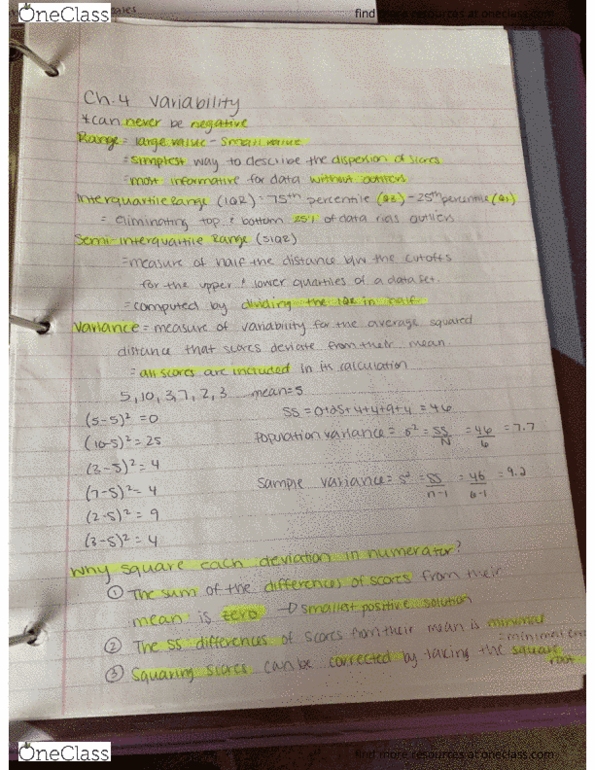 OneClass
find more resources at oneclass.com
Ch.4 Variability
*can never be negative
Range = large value - small value
= simplest way to describe the dispersion of scores
= most informative for data without outliers
Interquartile Range (IQR) = 75th percentile (Q3) - 25th percentile (Q1)
= eliminating top & bottom 25% of data rids outliers
Semi-interquartile Range (SIQR)
= measure of half the distance b/w the cutoffs
for the upper & lower quartiles of a data set.
= computed by dividing the IQR in half
Variance = measure of variability for the average squared
distance that scores deviate from their mean.
= all scores are included in its calculation
5, 10, 3, 7, 2, 3 mean=5
(5-5)² = 0
SS = 0+25+4+4+9+4 = 46
(10-5)² = 25
Population variance = σ² = SS/N = 46/6 = 7.7
(3-5)² = 4
(7-5)² = 4
Sample variance = s² = SS/n-1 = 46/6-1 = 9.2
(2-5)² = 9
(3-5)² = 4
Why square each deviation in numerator?
① The sum of the differences of scores from their
mean is zero → smallest positive solution
② The SS differences of scores from their mean is minimal
= minimal
③ Squaring scores can be corrected by taking the square
root
OneClass
find more resources at oneclass.com